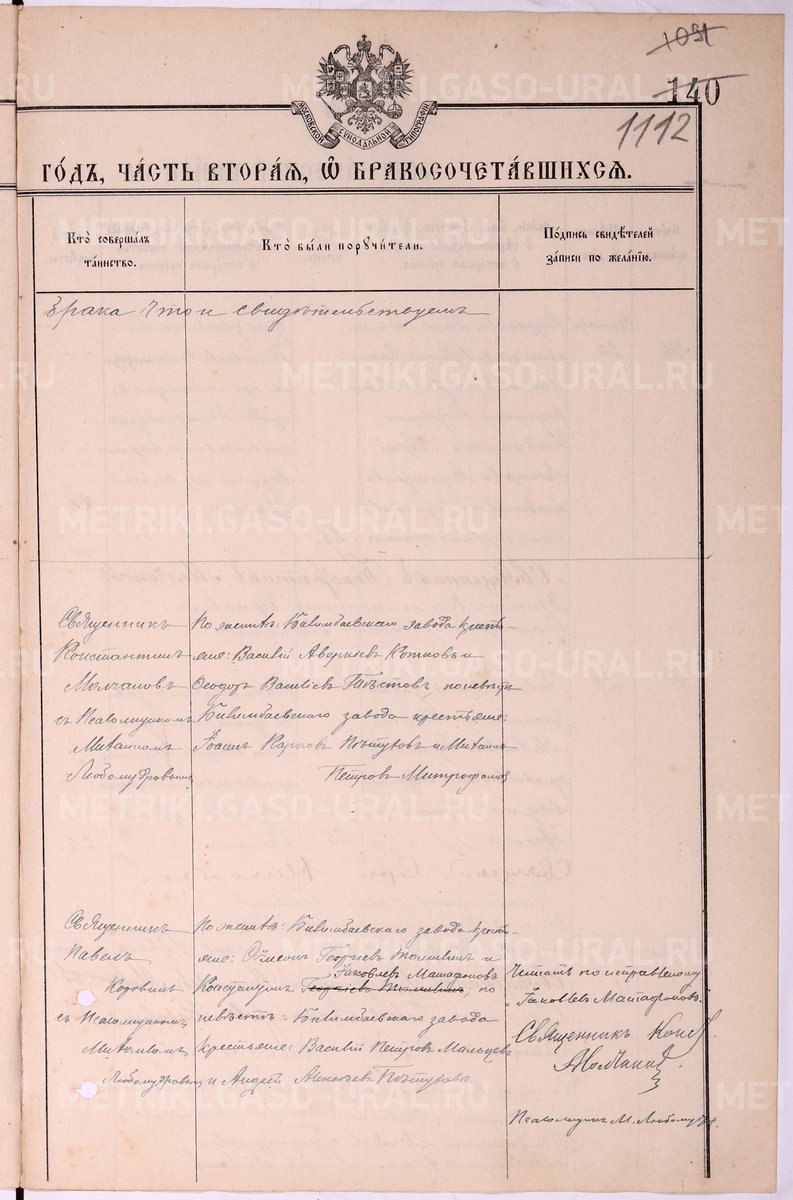 1091
140
1112
МОСКОВСКОЙ СѴНОДАЛЬНОЙ ТИПОГРАФІИ
ГОДЪ, ЧАСТЬ ВТОРАЯ, Ѿ БРАКОСОЧЕТАВШИХСЯ.
Кто совершалъ таинство.
Кто были поручители.
Подпись свидѣтелей записи по желанію.
брака что и свидѣтельствуемъ
Священникъ
Константинъ
Молчановъ
съ Псаломщикомъ
Михаиломъ
Любомудровымъ
По женихѣ: Билимбаевскаго завода кресть-
яне: Василій Аверкіевъ Котковъ и
Ѳеодоръ Василіевъ; по невѣстѣ
Билимбаевскаго завода крестьяне:
Іоаннъ Карповъ Пѣтуховъ и Михаилъ
Петровъ Митрофановъ
Священникъ
Павелъ
Коровинъ
съ Псаломщикомъ
Михаиломъ
Любомудровымъ
По женихѣ: Билимбаевскаго завода крест-
яне: Симеонъ Георгіевъ Томилинъ и
Іаковлевъ Матафоновъ
Георгіевъ Томилинъ; по
невѣстѣ: Билимбаевскаго завода
крестьяне: Василій Петровъ Мальцевъ
и Андрей Алексѣевъ Пѣтуховъ.
Читать по исправленному
"Іаковлевъ Матафоновъ."
Священникъ Конст.
Молчановъ
Псаломщикъ М. Любомудр.
METRIKI.GASO-URAL.RU